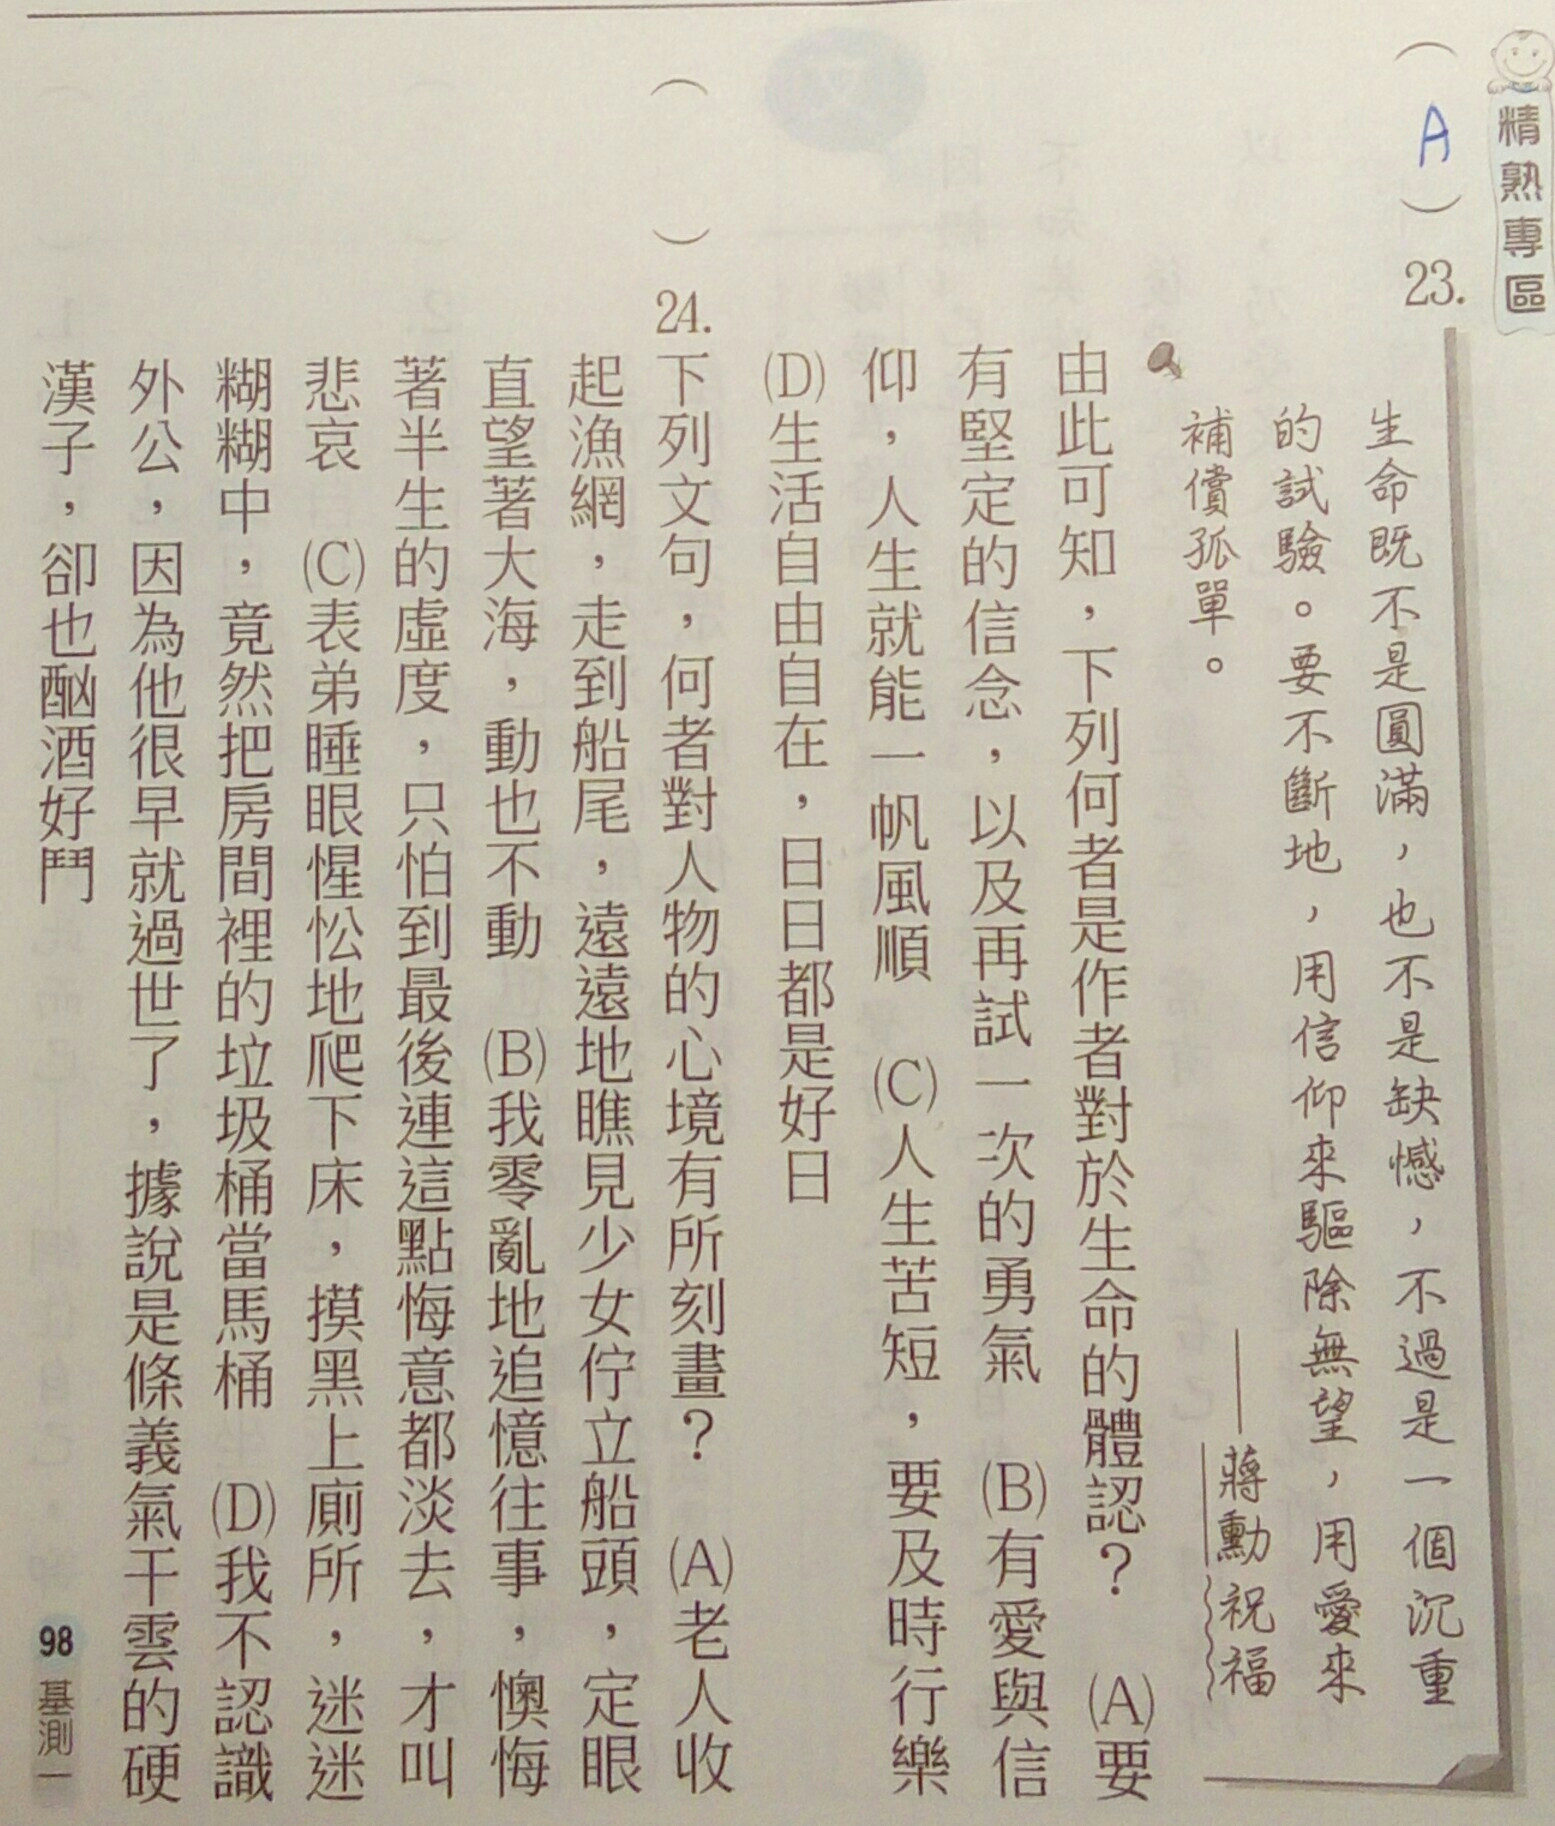 精熟專區
(A)23.
生命既不是圓滿，也不是缺憾，不過是一個沉重
的試驗。要不斷地，用信仰來驅除無望，用愛來
補償孤單。
——蔣勳祝福
由此可知，下列何者是作者對於生命的體認？　(A)要
有堅定的信念，以及再試一次的勇氣　(B)有愛與信
仰，人生就能一帆風順　(C)人生苦短，要及時行樂
(D)生活自由自在，日日都是好日
(　)24.下列文句，何者對人物的心境有所刻畫？　(A)老人收
起漁網，走到船尾，遠遠地瞧見少女佇立船頭，定眼
直望著大海，動也不動　(B)我零亂地追憶往事，懊悔
著半生的虛度，只怕到最後連這點悔意都淡去，才叫
悲哀　(C)表弟睡眼惺忪地爬下床，摸黑上廁所，迷迷
糊糊中，竟然把房間裡的垃圾桶當馬桶　(D)我不認識
外公，因為他很早就過世了，據說是條義氣干雲的硬
漢子，卻也酗酒好鬥
98 基測一